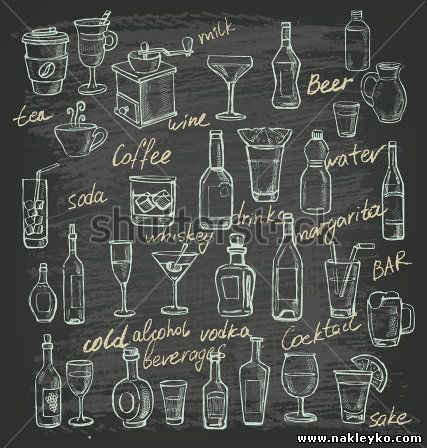 milk
Beer
tea
wine
Coffee
water
soda
drinks
margarita
whiskey
shutterstock
BAR
cold alcohol vodka
beverages
Cocktail
sake
www.nakleyko.com